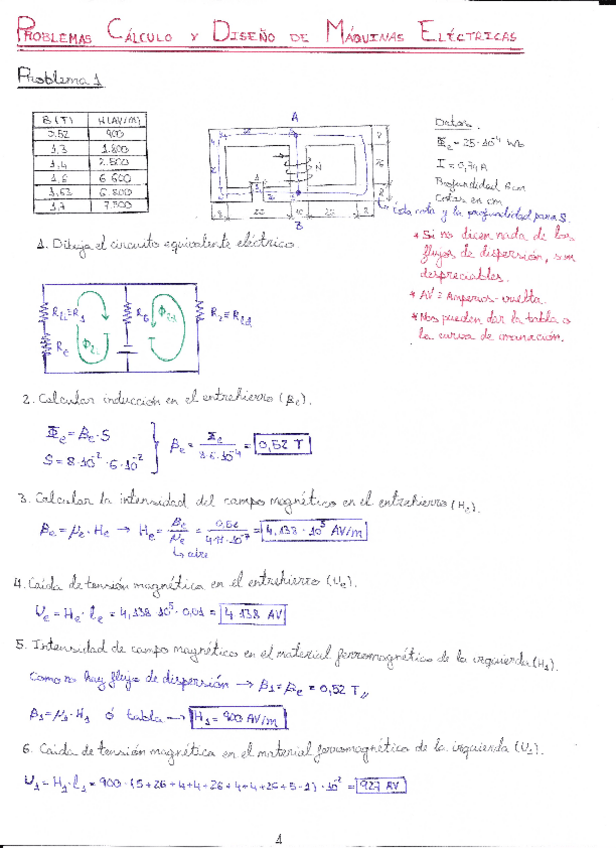 PROBLEMAS CÁLCULO Y DISEÑO DE MÁQUINAS ELÉCTRICAS
Problema 1
B (T) H (AV/m)
0,52 900
1,3 1.800
1,4 2.500
1,6 6.600
1,63 6.800
1,7 7.800
A
N
B
Datos.
Φe = 25·10⁻⁴ Wb
I = 0,74 A
Profundidad 6cm
Cotas en cm
Esta cota y la profundidad para S.
* Si no dicen nada de los
flujos de dispersión, son
despreciables.
* AV ≡ Amperios-vuelta.
* Nos pueden dar la tabla o
la curva de imanación.
1. Dibuja el circuito equivalente eléctrico.
Re
2. Calcular inducción en el entrehierro (βe).
Φe = βe · S
S = 8·10⁻² · 6·10⁻²
βe = Φe / 8·6·10⁻⁴ = 0,52 T
3. Calcular la intensidad del campo magnético en el entrehierro (He).
βe = μe · He → He = βe / μe = 0,52 / 4π·10⁻⁷ = 4,138 · 10⁵ AV/m
↳ aire
4. Caída de tensión magnética en el entrehierro (Ue).
Ue = He · le = 4,138·10⁵ · 0,01 = 4.138 AV
5. Intensidad de campo magnético en el material ferromagnético de la izquierda (H1).
Como no hay flujo de dispersión → β1 = βe = 0,52 T //
β1 = μ1 · H1 ó tabla → H1 = 900 AV/m
6. Caída de tensión magnética en el material ferromagnético de la izquierda (U1).
U1 = H1 · l1 = 900 · (5+26+4+4+26+4+4+26+5-1) · 10⁻² = 927 AV
1